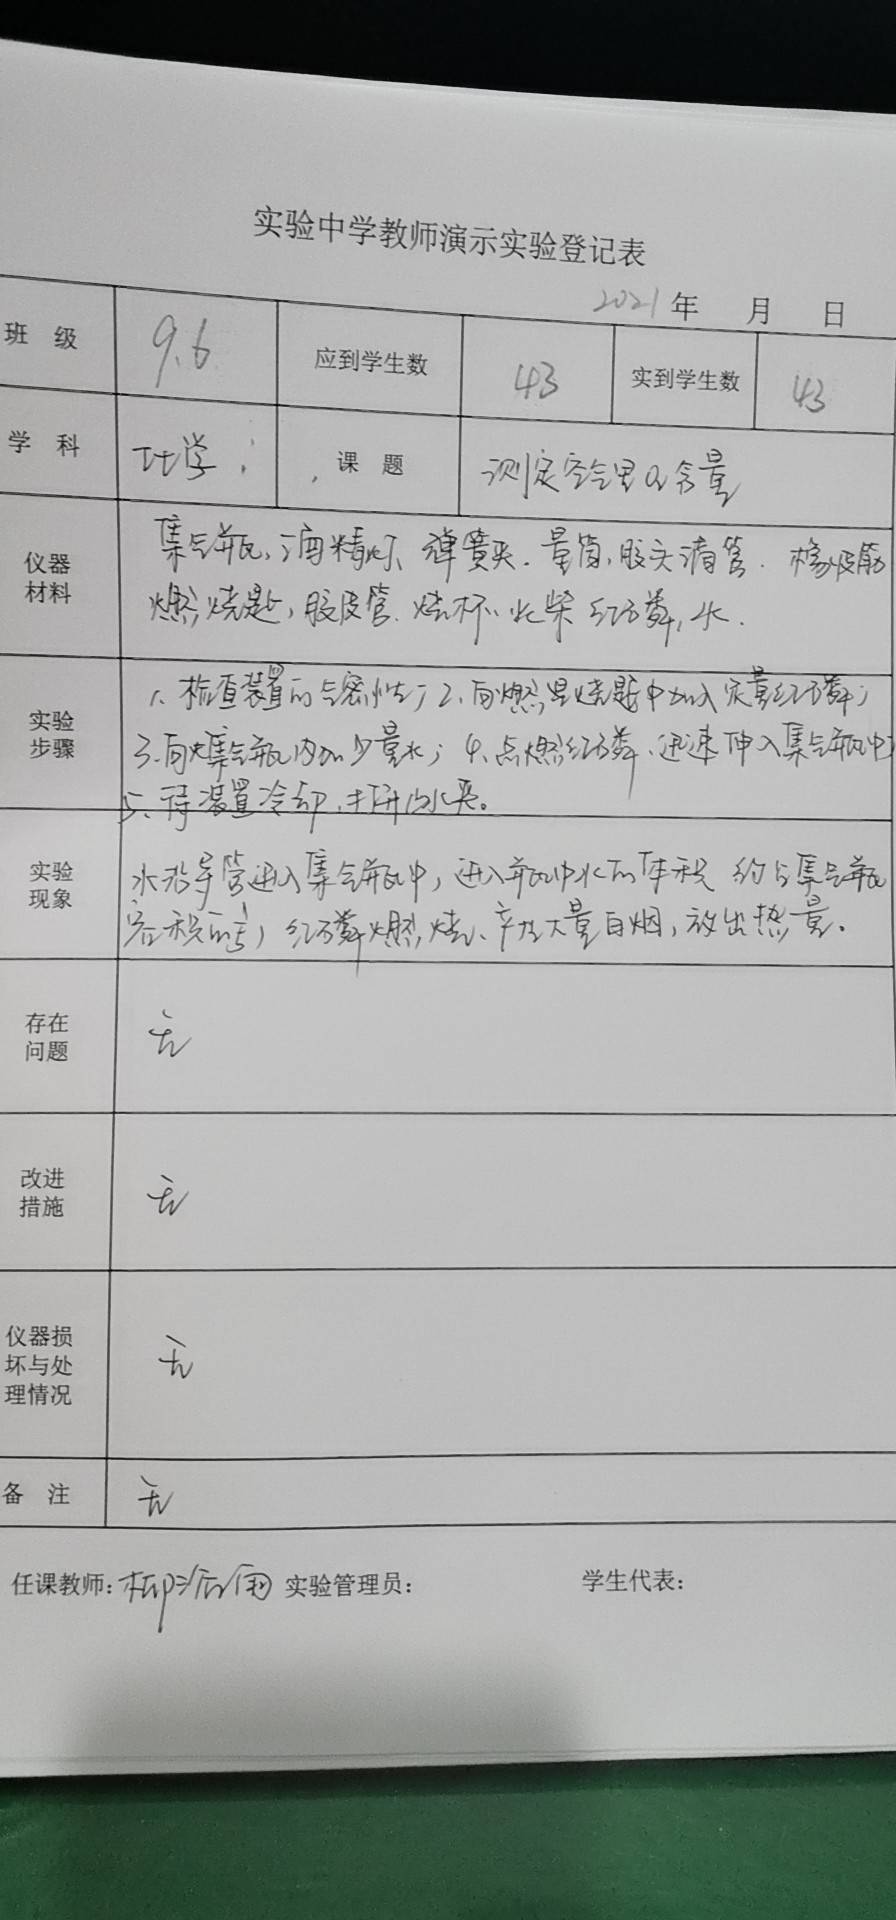 实验中学教师演示实验登记表
2021年 月 日
班 级 9.6 应到学生数 43 实到学生数 43
学 科 化学 课 题 测定空气里O₂含量
仪器材料
集气瓶,酒精灯、弹簧夹.量筒,胶头滴管.橡皮筋
燃烧匙,胶皮管.烧杯.火柴 红磷,水.
实验步骤
1、检查装置的气密性;2、向燃烧匙中加入定量红磷;
3、向集气瓶内加少量水;4、点燃红磷、迅速伸入集气瓶中
5、待装置冷却,打开止水夹。
实验现象
水沿导管进入集气瓶中,进入瓶中水的体积约占集气瓶
容积的1/5;红磷燃烧、产生大量白烟,放出热量。
存在问题
无
改进措施
无
仪器损坏与处理情况
无
备 注 无
任课教师: 实验管理员: 学生代表: